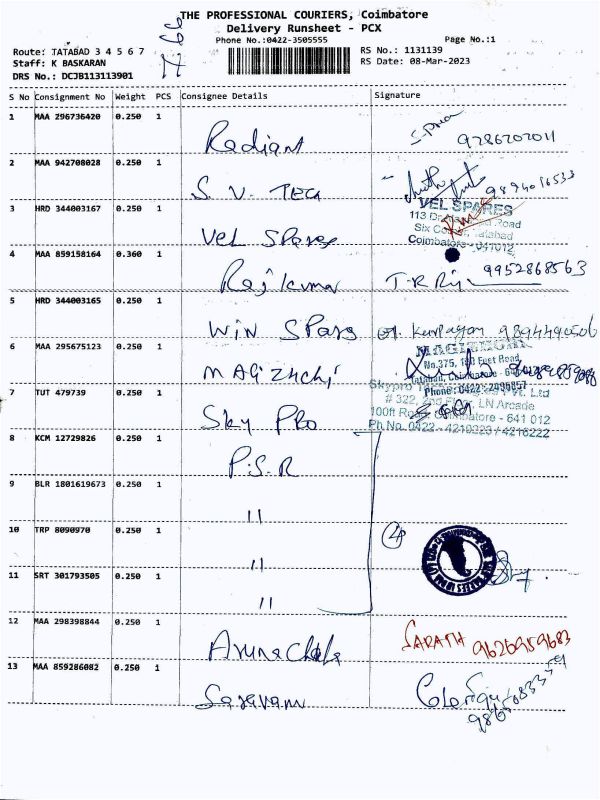 THE PROFESSIONAL COURIERS, Coimbatore
Delivery Runsheet - PCX
Phone No.:0422-3505555
Page No.:1
Route: TATABAD 3 4 5 6 7
RS No.: 1131139
Staff: K BASKARAN
RS Date: 08-Mar-2023
DRS No.: DCJB113113901
S No Consignment No Weight PCS Consignee Details Signature
1 MAA 296736420 0.250 1 Radiant 9286202011
2 MAA 942708028 0.250 1 S. V. TECH
3 HRD 344003167 0.250 1 Vel Spares
VEL SPARES
Coimbatore - 641012
4 MAA 859158164 0.360 1 Rajkumar 9952868563
5 HRD 344003165 0.250 1 Win Spares 9894490506
6 MAA 295675123 0.250 1 MAGIZHCHI
No.375, 100 Feet Road
Tatabad, Coimbatore
Phone: 0422 - 2496857
7 TUT 479739 0.250 1 Sky Pro
LN Arcade
100ft Road, Coimbatore - 641 012
Ph.No. 0422 - 4210223 / 4216222
8 KCM 12729826 0.250 1 P.S.R
9 BLR 1801619673 0.250 1 11
10 TRP 8090970 0.250 1 11 4
11 SRT 301793505 0.250 1 11
12 MAA 298398844 0.250 1 Arunachala SARATH 9626959683
13 MAA 859286082 0.250 1